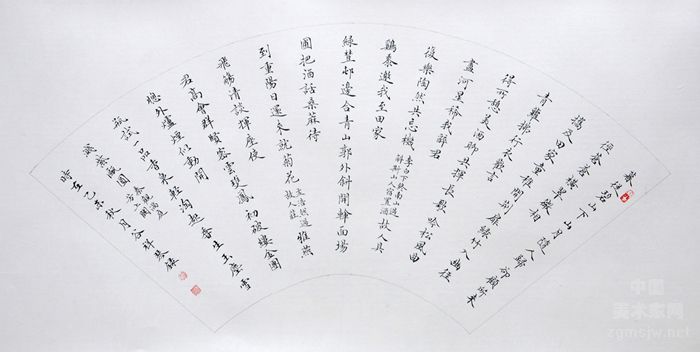 暮從碧山下山月隨人歸卻顧所來
徑蒼蒼橫翠微相
攜及田家童稚開荊扉綠竹入幽徑
青蘿拂行衣歡言
得所憩美酒聊共揮長歌吟松風曲
盡河星稀我醉君
復樂陶然共忘機 李白下終南山過斛斯山人宿置酒 故人具
雞黍邀我至田家
綠樹邨邊合青山郭外斜開軒面場
圃把酒話桑麻待
到重陽日還來就菊花 孟浩然過故人莊 雅燕
飛觴清談揮座使
君高會群賢密雲雙鳳初破縷金團
窗外爐煙似動開
瓶試一品香泉輕淘起香生玉塵雪
濺紫甌圓 秦觀滿庭芳上闋
時在己未秋月
中国
美术家网
zgmsjw.net